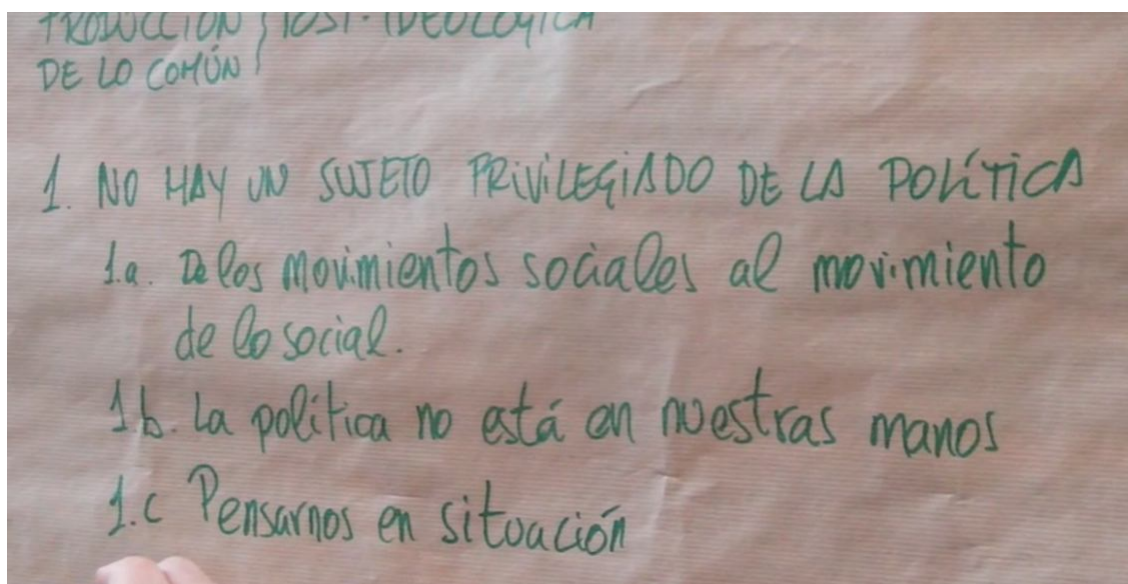 PRODUCCIÓN } POST-IDEOLÓGICA
DE LO COMÚN
1. NO HAY UN SUJETO PRIVILEGIADO DE LA POLÍTICA
1.a. De los movimientos sociales al movimiento
de lo social.
1b. La política no está en nuestras manos
1.c Pensarnos en situación